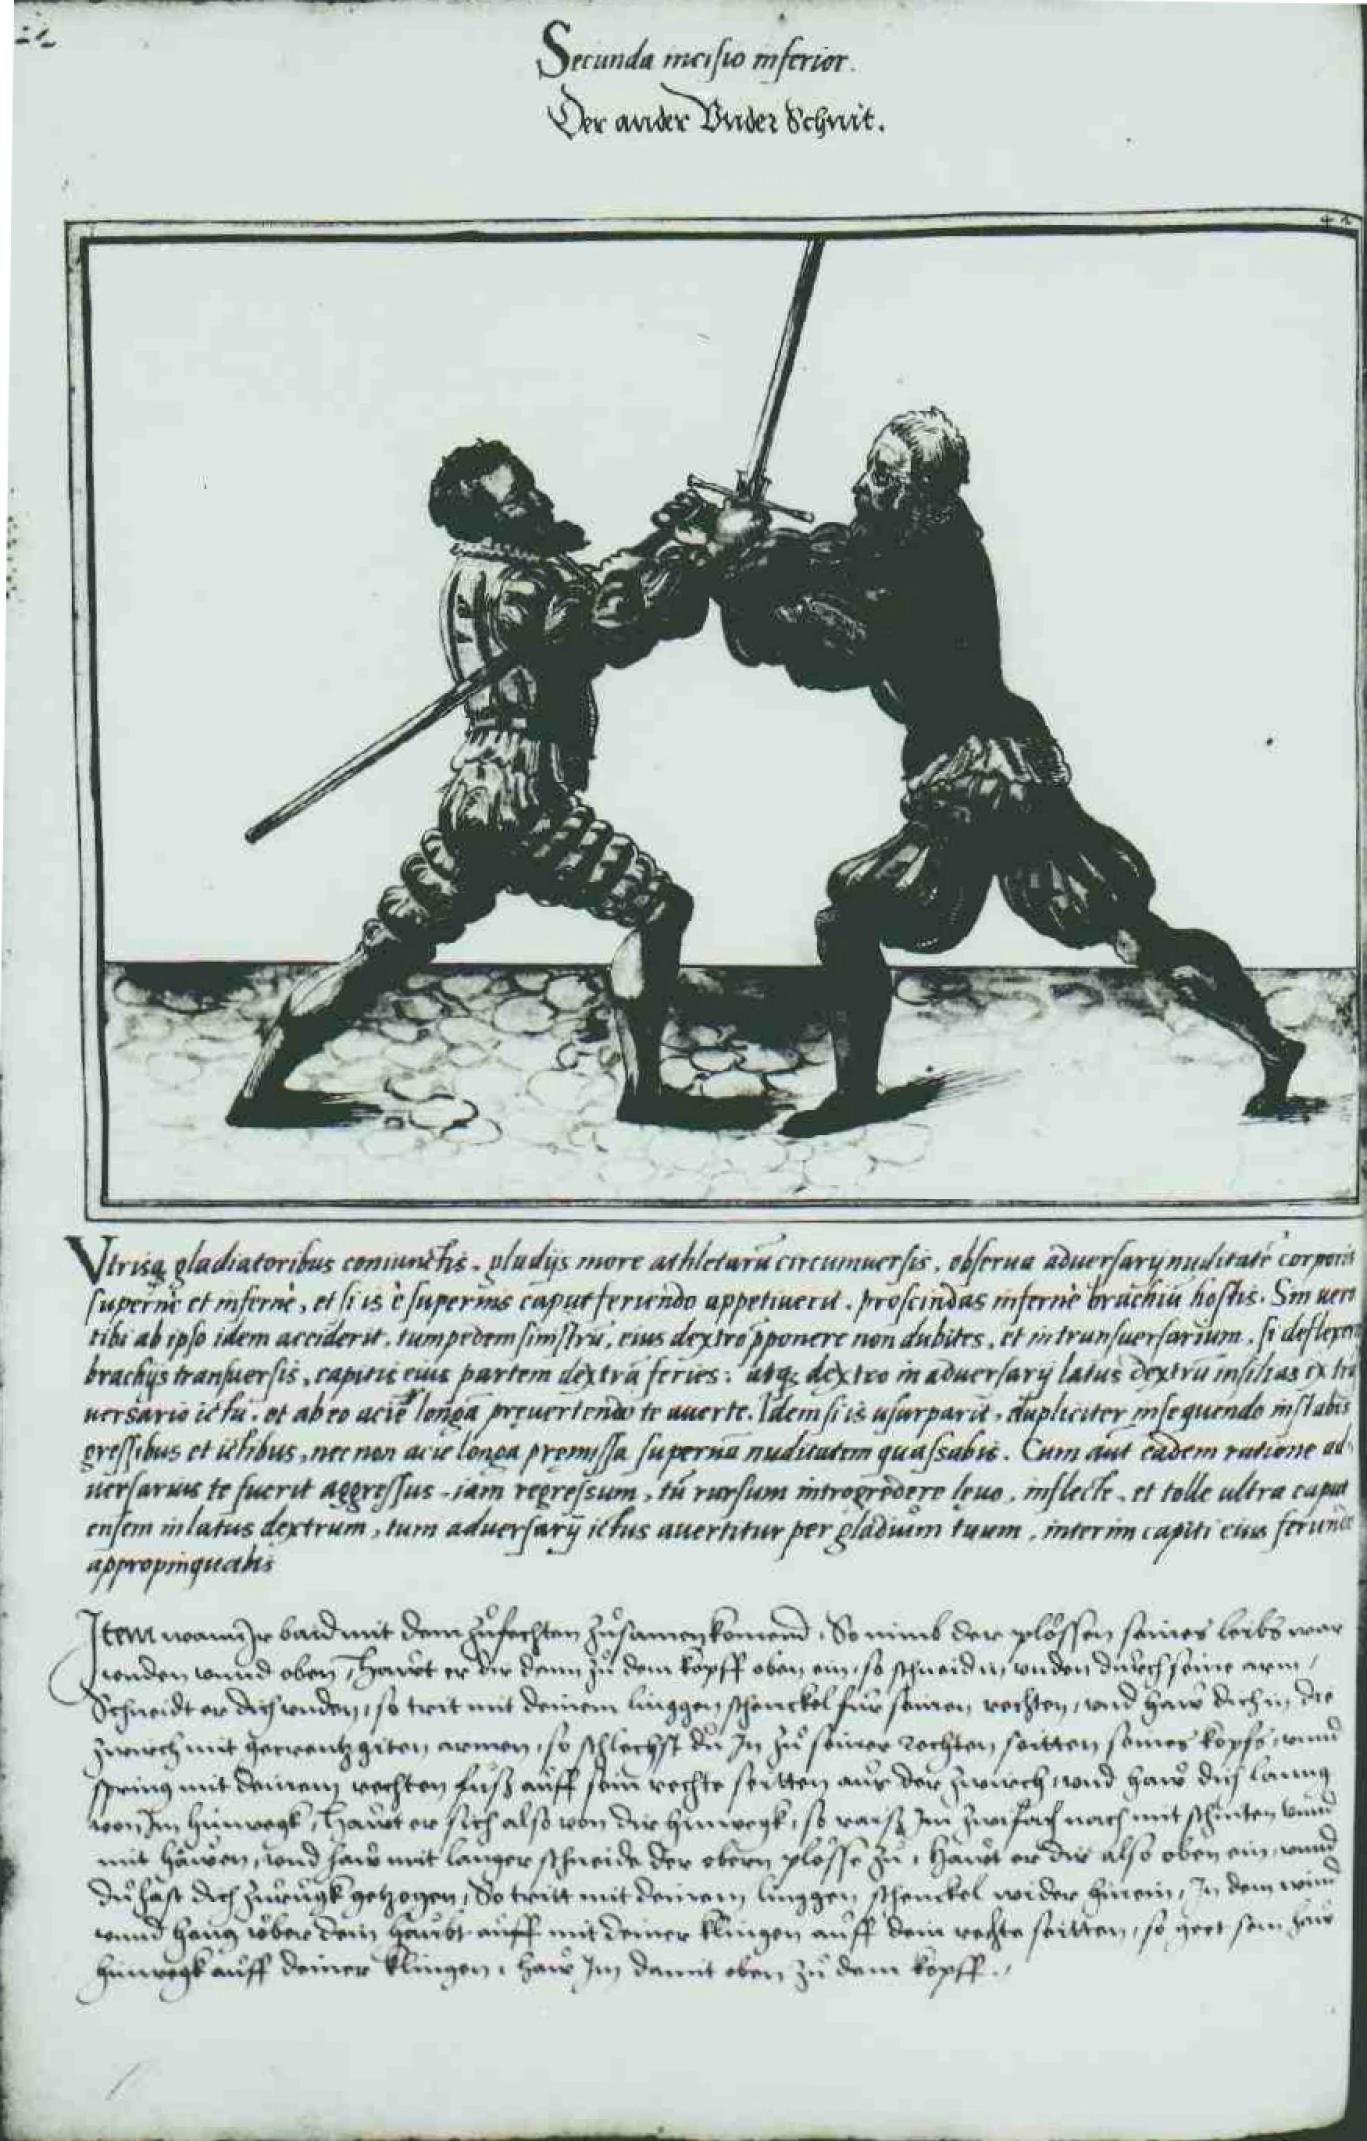 Secunda incisio inferior.
Der ander Vnder Schnit.
42
Vtrisq gladiatoribus coniunctis, gladijs more athletarū circumuersis, obserua aduersarij nuditatē corporis
supernè et infernè, et si is è supernis caput feriendo appetiuerit, proscindas infernè brachiū hostis. Sin uero
tibi ab ipso idem acciderit, tum pedem sinistrū, eius dextro opponere non dubites, et in transuersarium, si deflexeris
brachijs transuersis, capitis eius partem dextrā feries: atq; dextro in aduersarij latus dextrū insilias ex trās
uersario ictu, et ab eo aciē longa preuertendo te auerte. Idem si is usurparit, dupliciter insequendo instabis
gressibus et ictibus, nec non acie longa premissa supernā nuditatem quassabis. Cum aut eadem ratione ad-
uersarius te fuerit aggressus iam regressum, tū rursum introgredere leuo, inflecte, et tolle ultra caput
ensem in latus dextrum, tum aduersarij ictus auertitur per gladium tuum, interim capiti eius feriundo
appropinquabis
Item wann Jr baid mit dem zůfechten zůsamen komend, So nimb der plössen seines leibs war
vnden vnnd oben, Hawt er dir dann zů dem kopff oben ein, so schneid in vnden durch seine arm,
Schneidt er dich vnden, so trit mit deinem linggen schenckel für seinen rechten, vnd haw dich in die
zwirch mit gecreutzgiten armen, so schlechst dů Jn zů seiner rechten seitten seines kopfs, vnnd
spring mit deinem rechten fůß auff sein rechte seitten aus der zwirch, vnd haw dich lanng
von Jm hinwegk, Hawt er sich also von dir hinwegk, so raiß Jm zwifach nach mit schriten vnnd
mit häwen, vnd haw mit langer schneide der obern plösse zů, Hawt er dir also oben ein, vnnd
dů hast dich zůrugk getzogen, So tritt mit deinem linggen schenckel wider hinein, In dem wind
vnnd heng über dein haubt auff mit deiner klingen auff dein rechte seitten, so geet sein haw
hinwegk auff deiner klingen, haw Jm damit oben zů dem kopff.